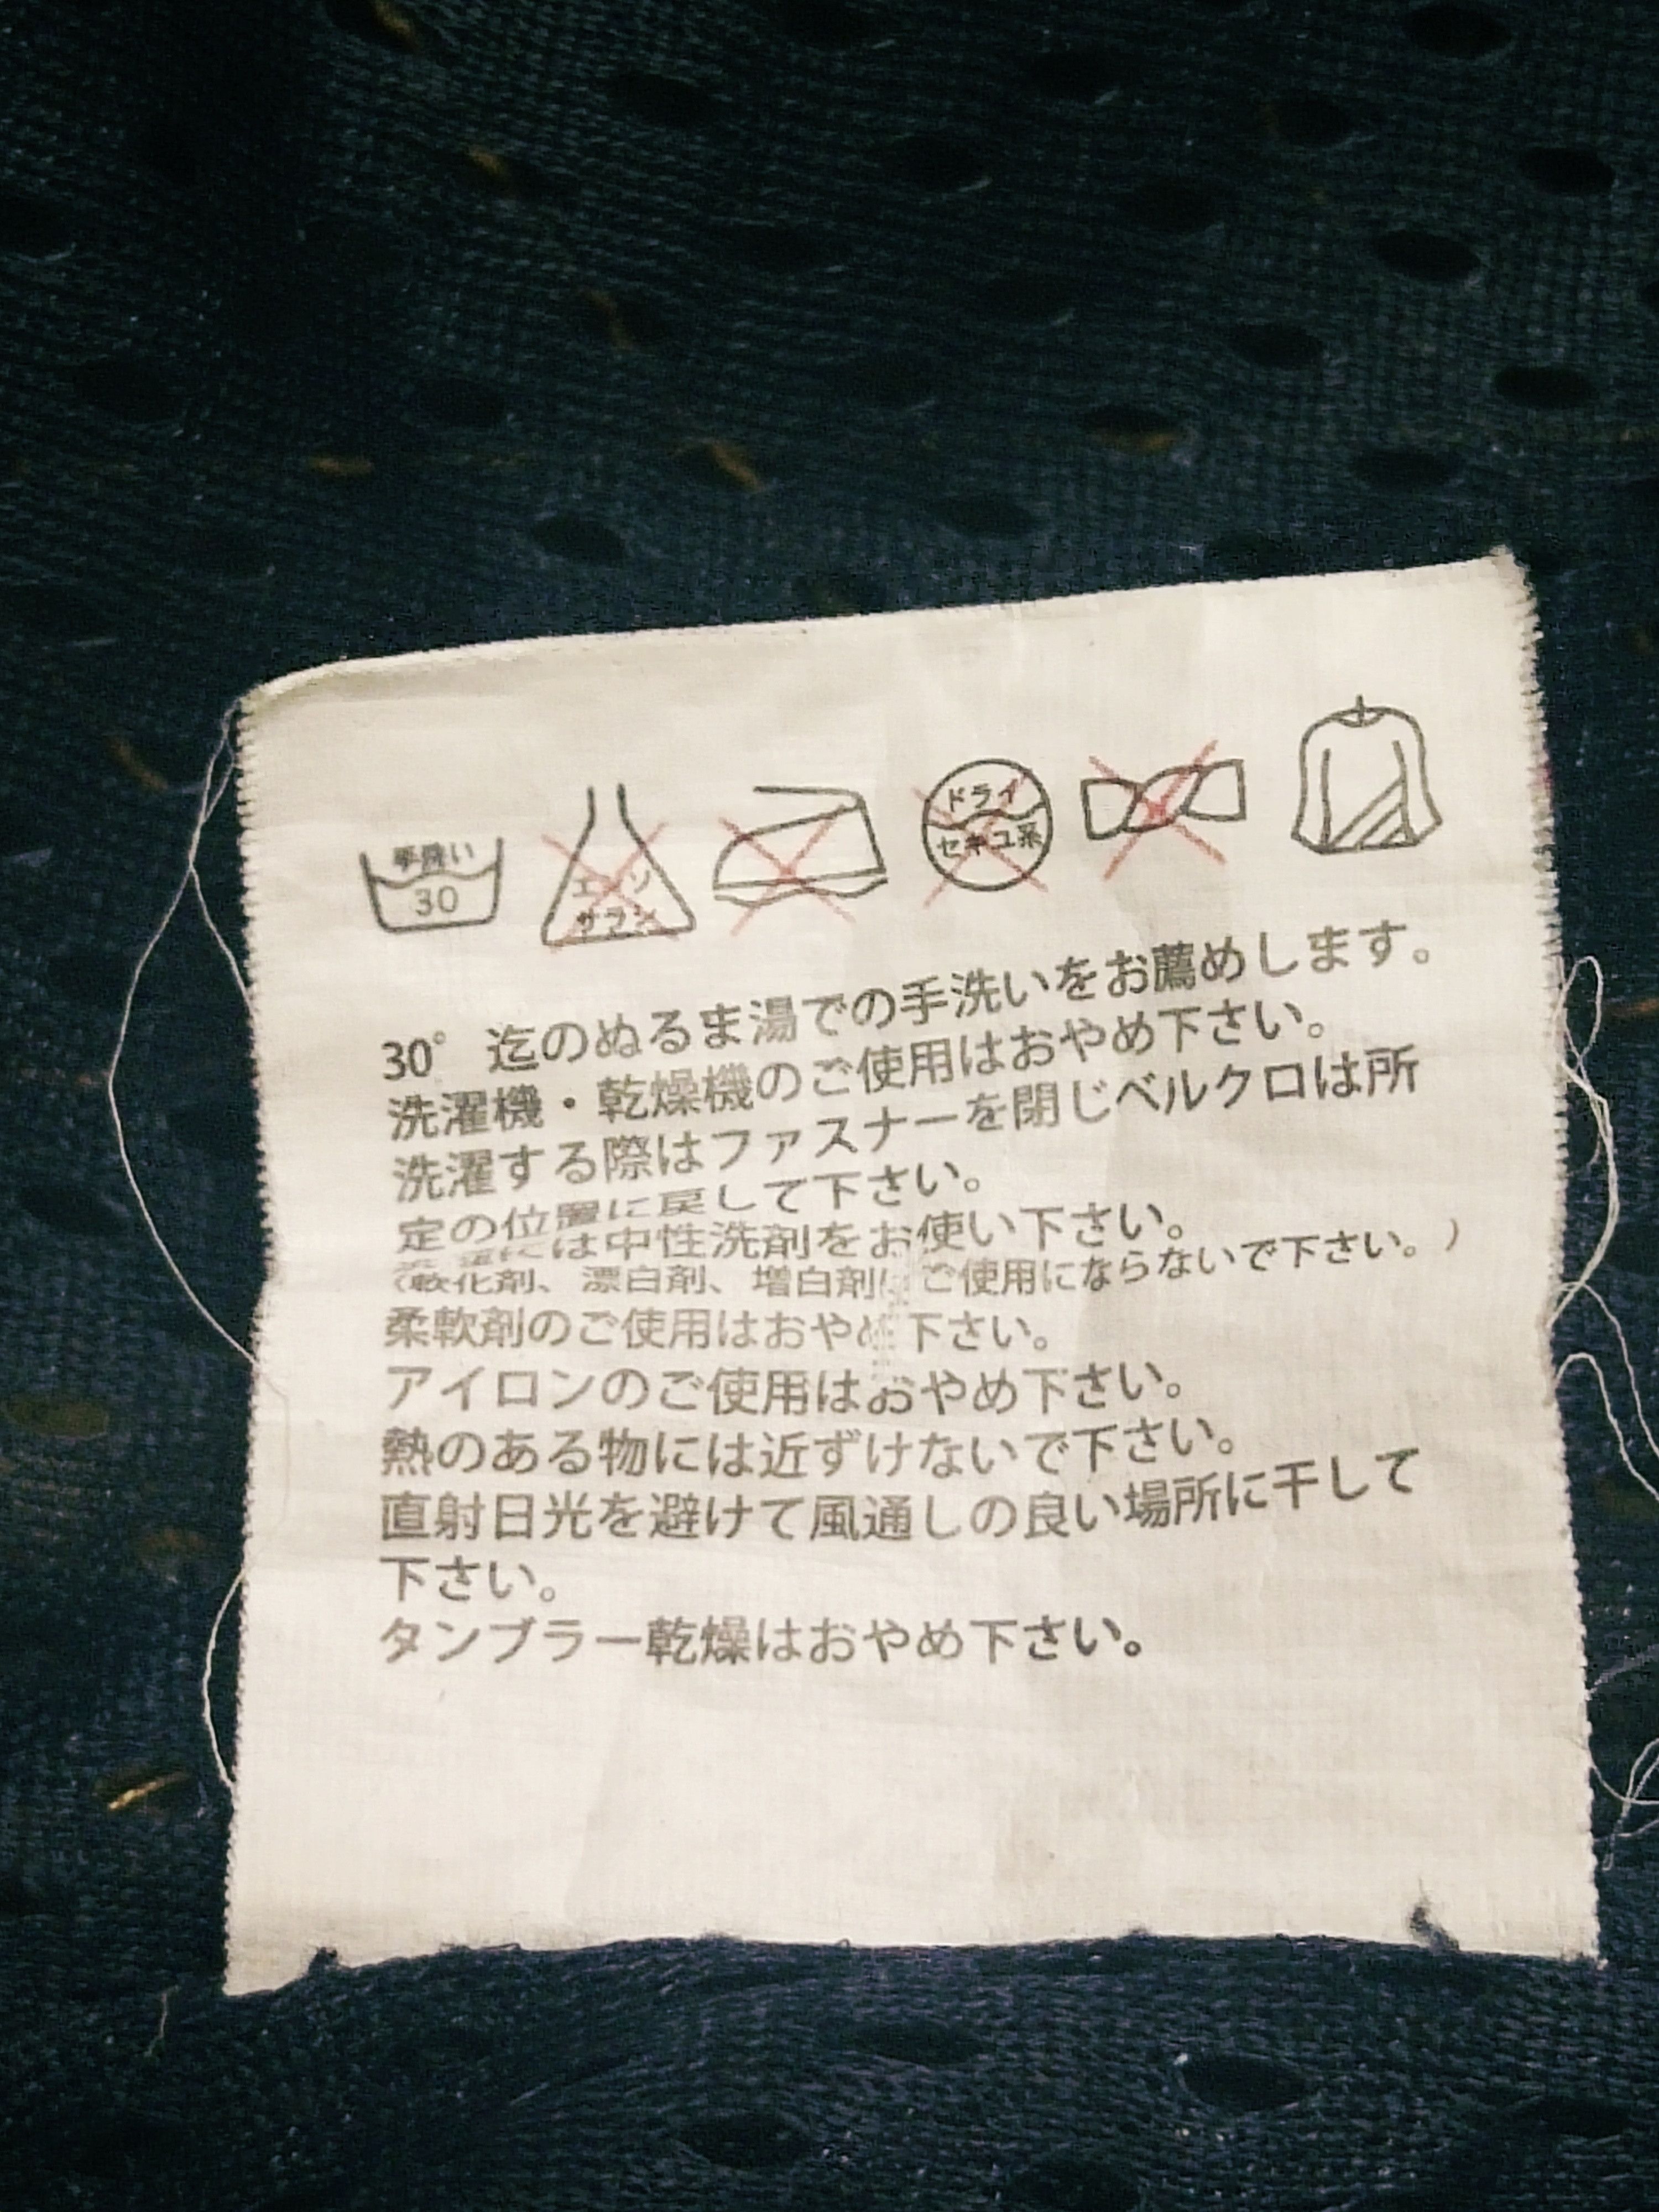 手洗い
30
エンソ
サラシ
ドライ
セキユ系
30° 迄のぬるま湯での手洗いをお薦めします。
洗濯機・乾燥機のご使用はおやめ下さい。
洗濯する際はファスナーを閉じベルクロは所
定の位置に戻して下さい。
には中性洗剤をお使い下さい。
(軟化剤、漂白剤、増白剤はご使用にならないで下さい。)
柔軟剤のご使用はおやめ下さい。
アイロンのご使用はおやめ下さい。
熱のある物には近ずけないで下さい。
直射日光を避けて風通しの良い場所に干して
下さい。
タンブラー乾燥はおやめ下さい。